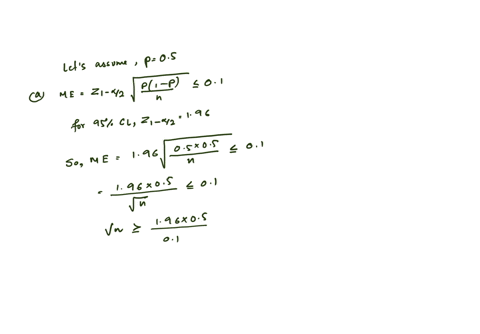 Let's assume, p=0.5
(a) ME = Z₁₋α/₂ √(p(1-p)/n) ≤ 0.1
for 95% CL, Z₁₋α/₂ = 1.96
So, ME = 1.96 √(0.5×0.5/n) ≤ 0.1
= 1.96×0.5/√n ≤ 0.1
√n ≥ 1.96×0.5/0.1